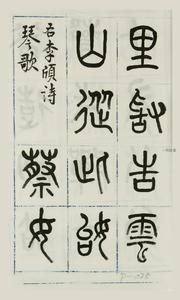 里敢告雲
山從此始
右李頎詩
琴歌
蔡女